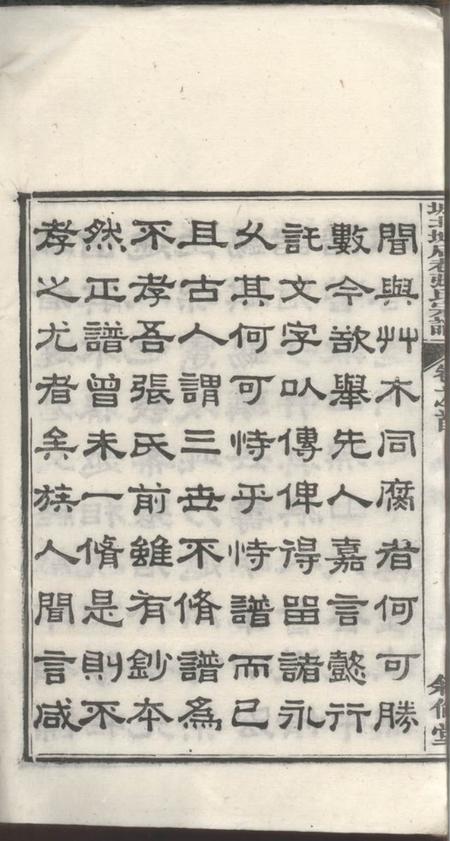 間與艸木同腐者何可勝
數今欲舉先人嘉言懿行
託文字以傳俾得留諸永
久其何可恃乎恃譜而已
且古人謂三世不脩譜爲
不孝吾張氏前雖有鈔本
然正譜曾未一脩是則不
孝之尤者矣族人聞言咸